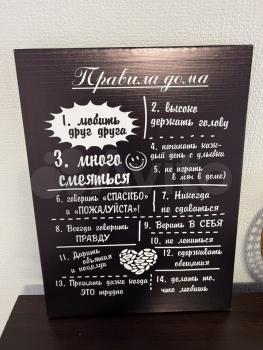 Правила дома
1. любить
друг друга
2. высоко
держать голову
3. много
смеяться
4. начинать каж-
дый день с улыбки
5. не играть
в мяч в доме)
6. говорить «СПАСИБО»
и «ПОЖАЛУЙСТА»!
7. Никогда
не сдаваться
8. Всегда говорить
ПРАВДУ
9. Верить В СЕБЯ
10. не лениться
11. Дарить
объятия
и поцелуи
12. сдерживать
обещания
13. Прощать даже когда
ЭТО трудно
14. делать то,
что любишь